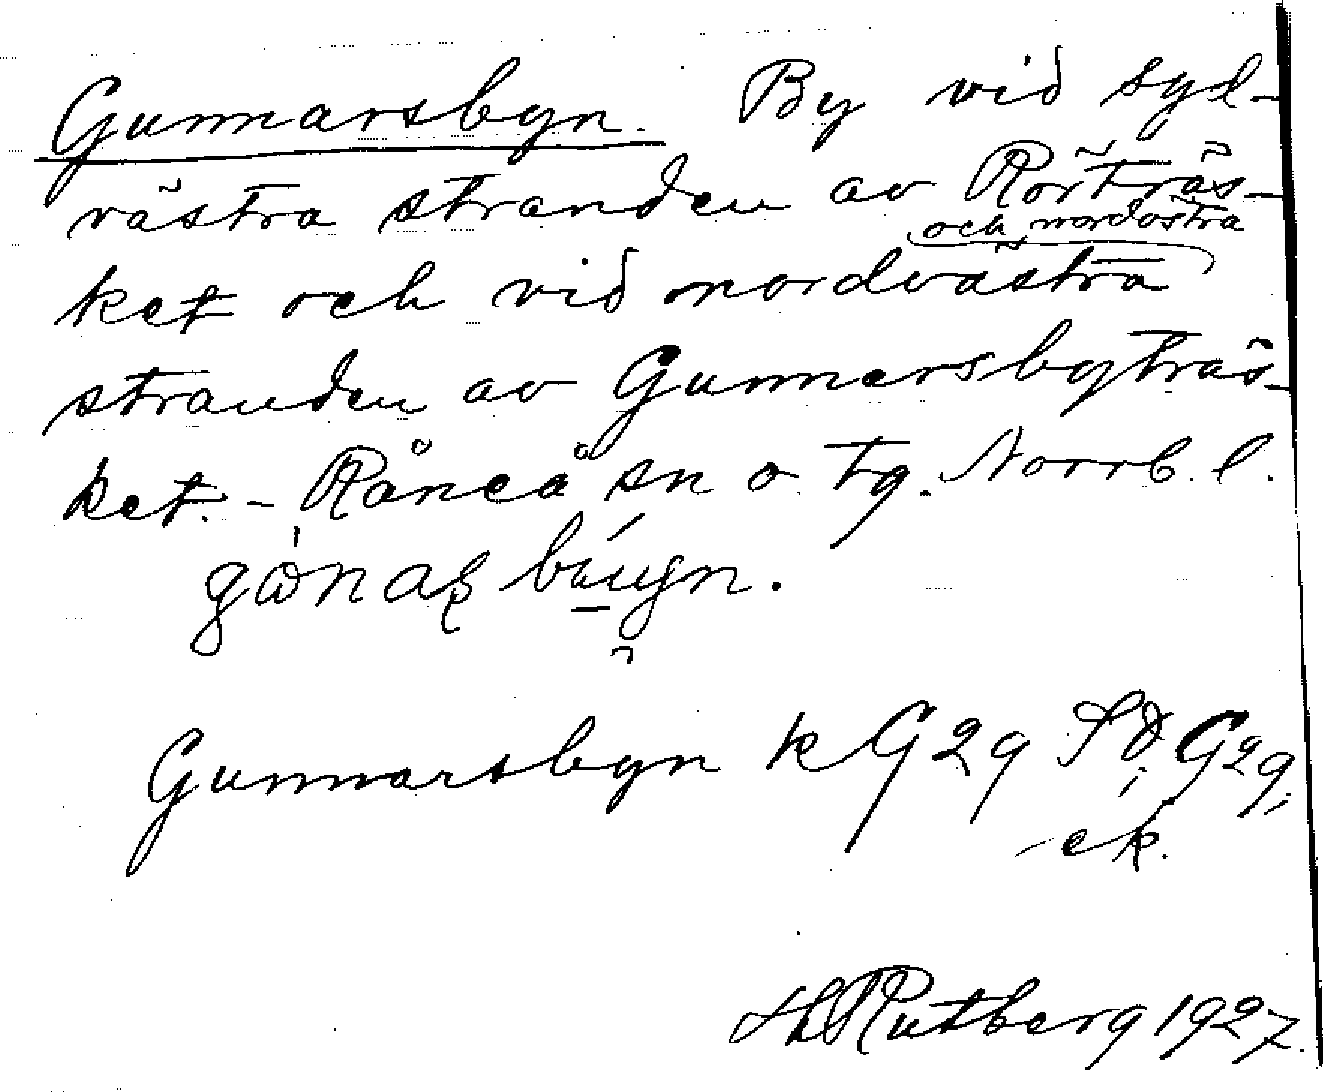 Gunnarsbyn. By vid syd-
västra stranden av Rörträs-
och nordöstra
ket och vid nordvästra
stranden av Gunnarsbyträs-
ket. - Råneå sn o tg. Norrb. l.
Gunnarsbyn k G29 SD; G29;
ek.
HRutberg 1927.